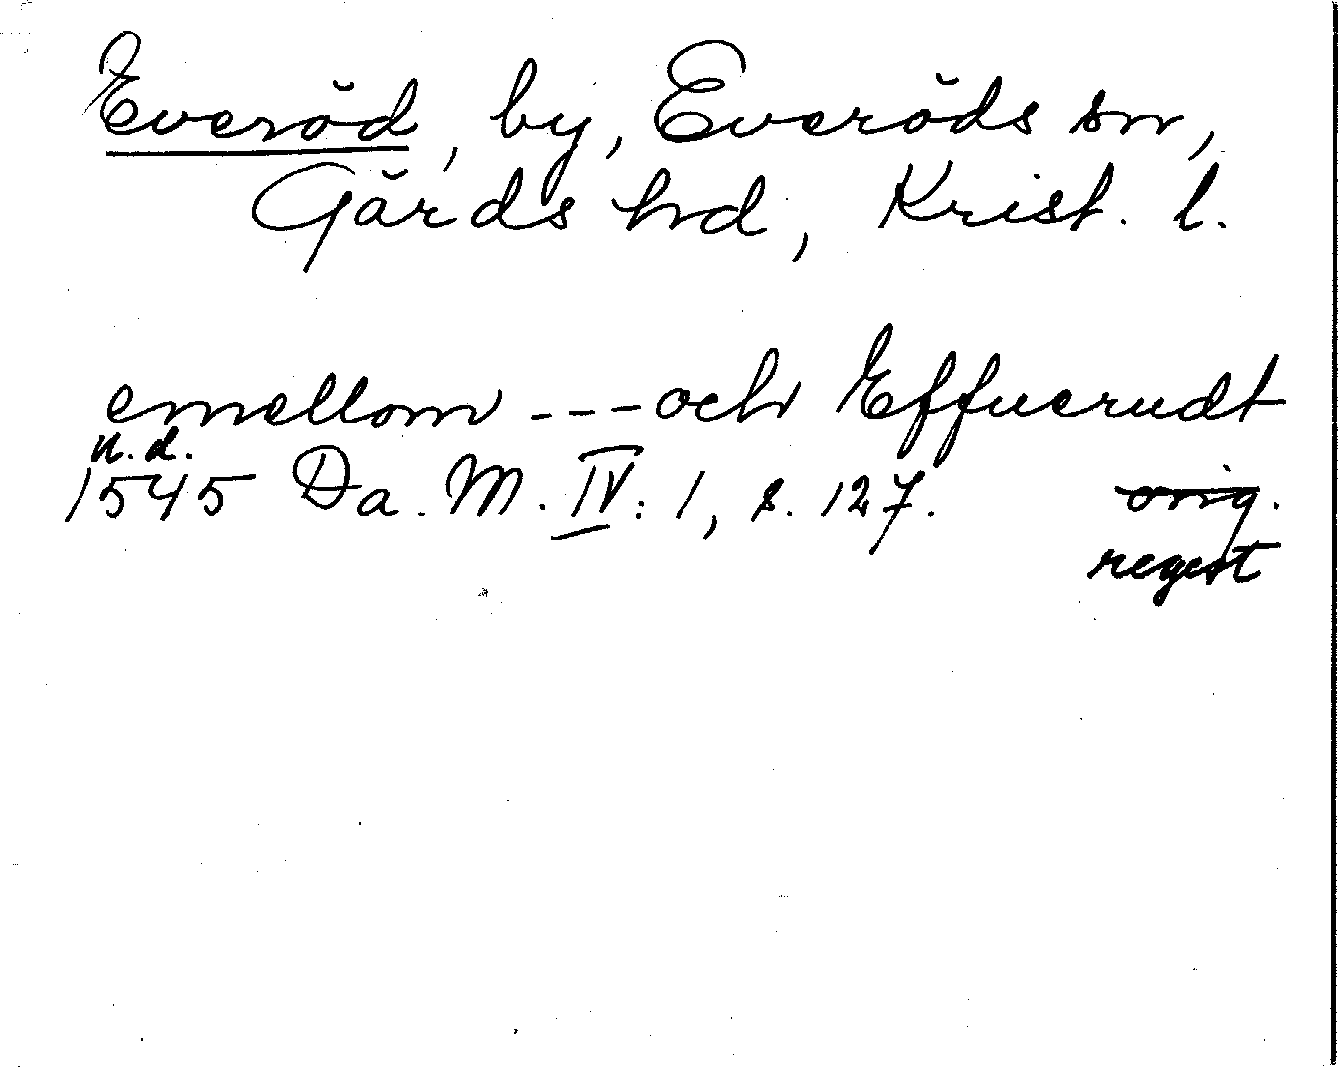 Everöd, by, Everöds sn,
Gärds hd, Krist. l.
emellom - - - och Effuerudt
n.d.
1545 Da. M. IV: 1, s. 127. orig.
regest